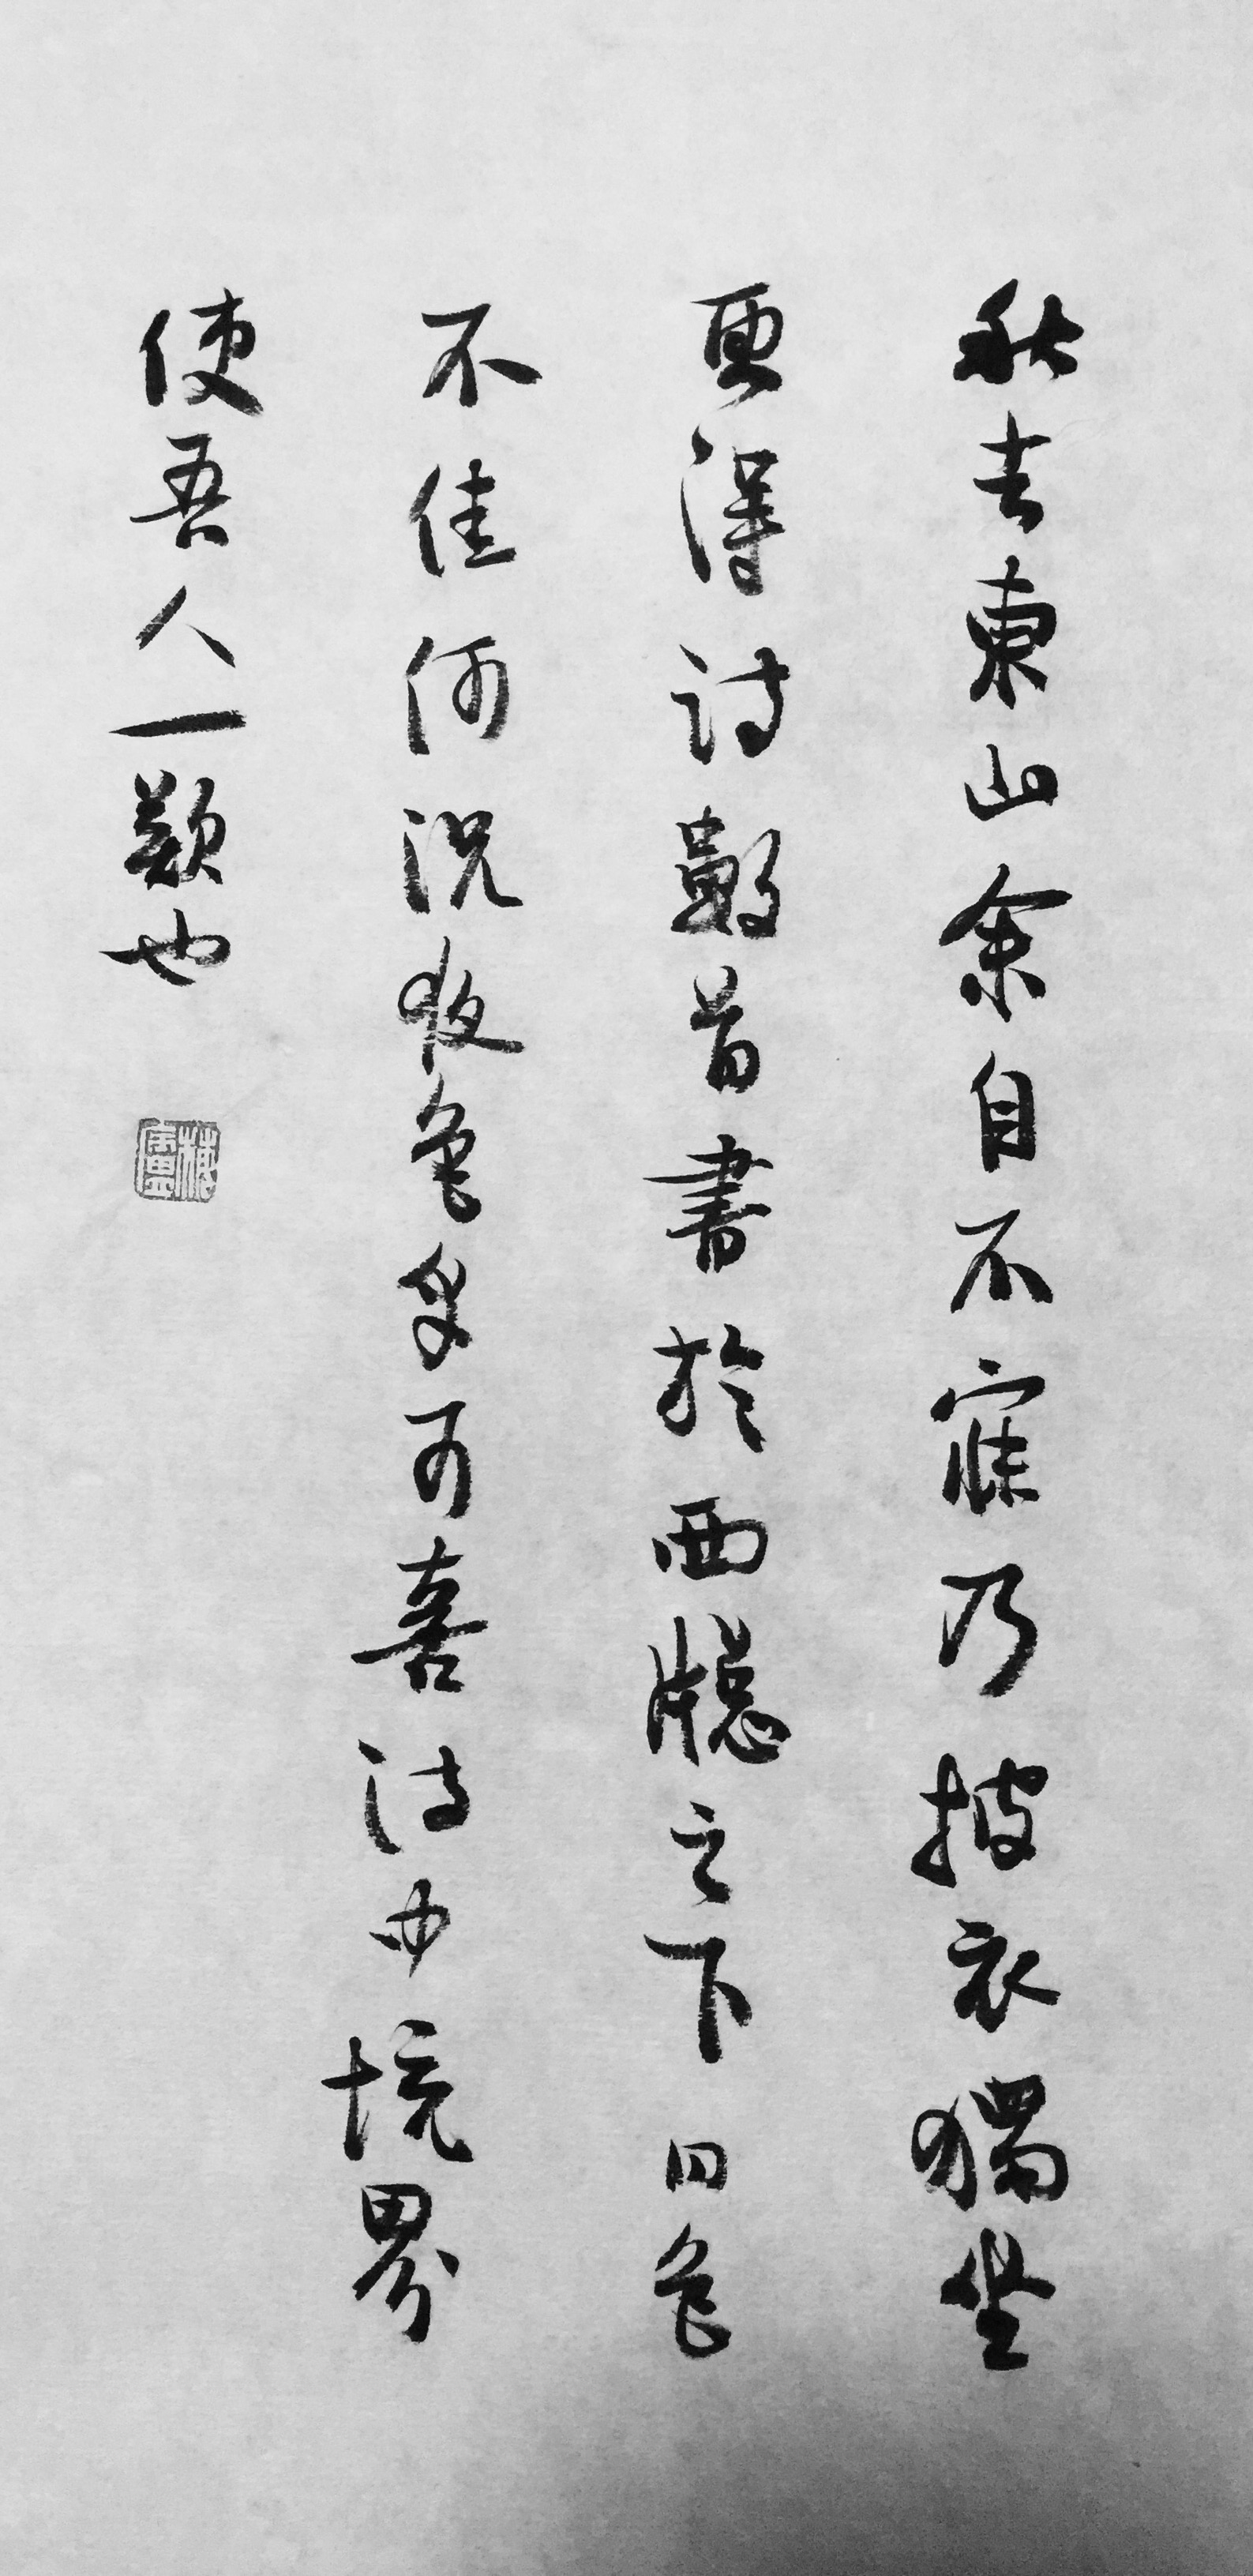 秋去東山余自不寐乃披衣獨坐
更得詩數首書於西牕之下日色
不佳何況夜色多可喜詩中境界
使吾人一歎也
梅盧